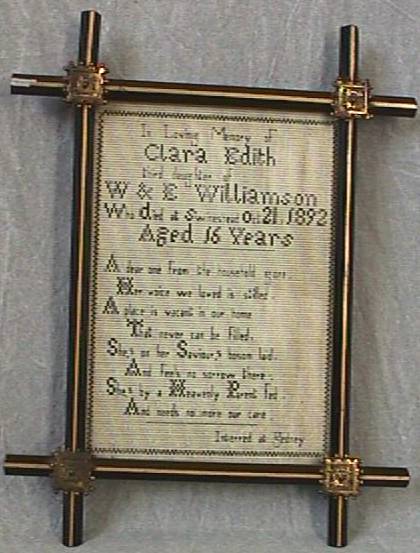 In Loving Memory of
Clara Edith
third daughter of
W & E Williamson
Who died at Oct 21, 1892
Aged 16 Years
A dear one from the household gone.
Her voice we loved is stilled.
A place is vacant in our home
That never can be filled.
She's on her Saviour's bosom laid.
And feels no sorrow there.
She's by a Heavenly Parent fed.
And needs no more our care.
Interred at